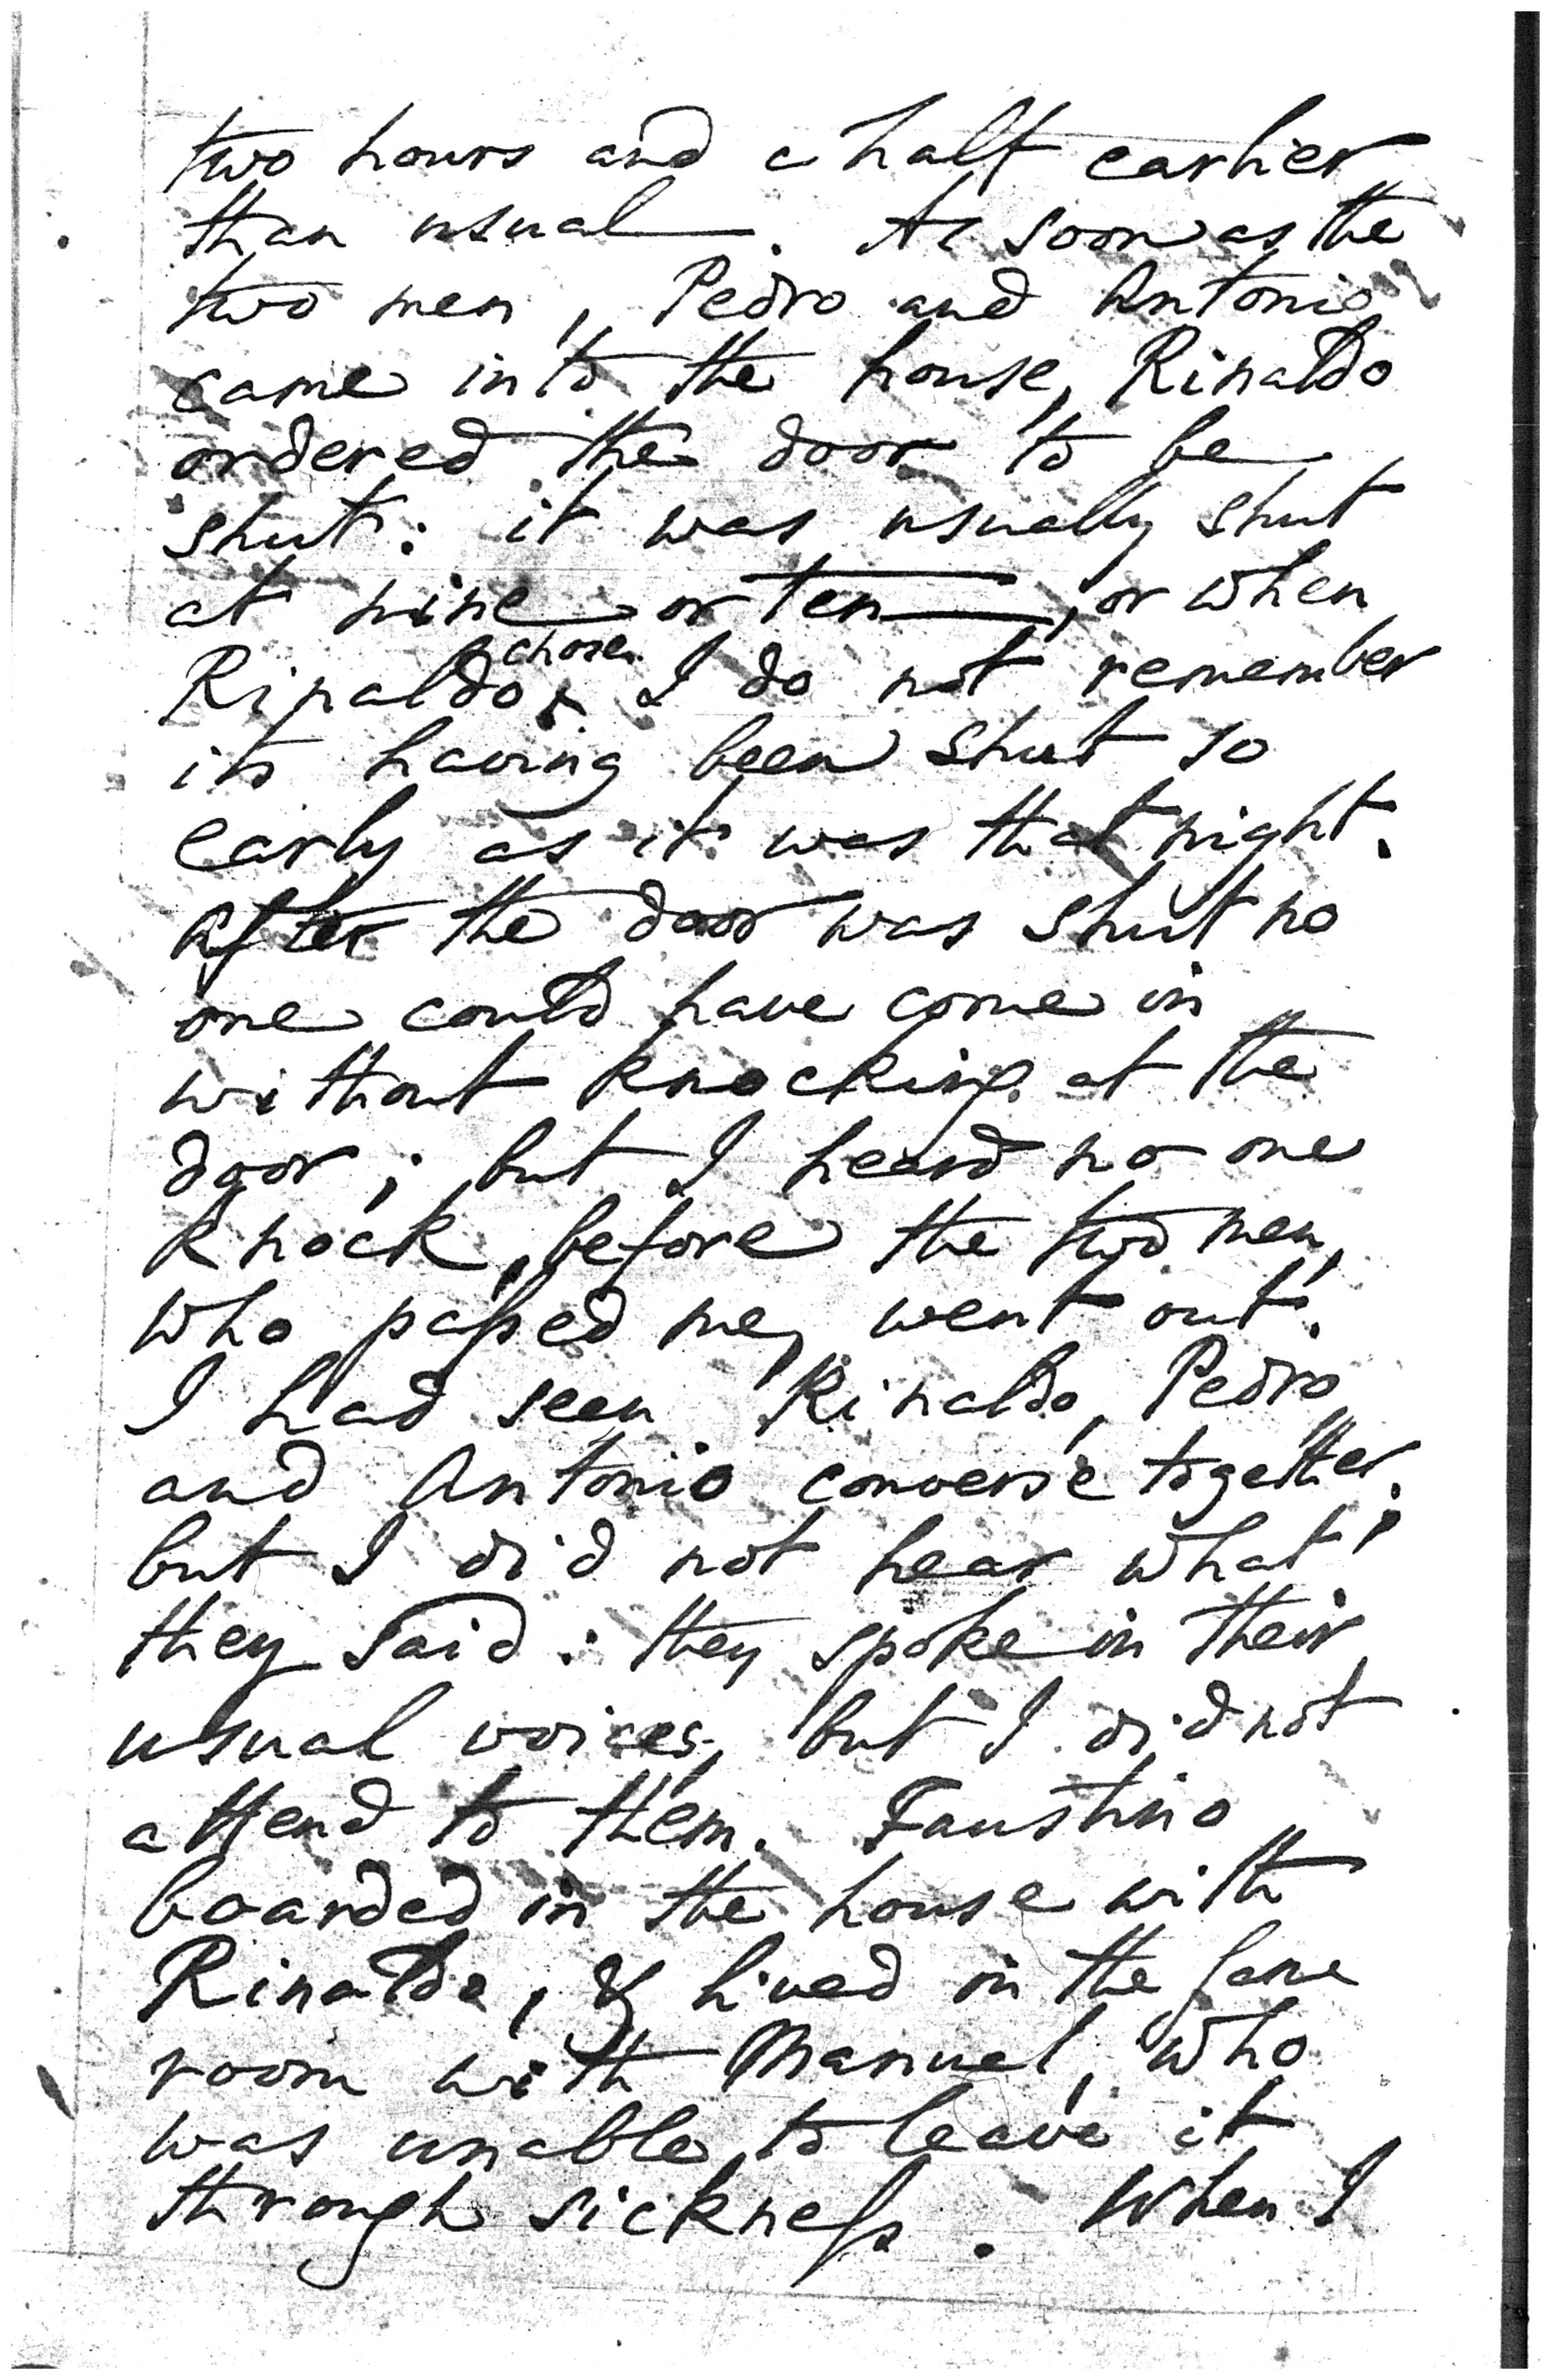 two hours and a half earlier
than usual. As soon as the
two men, Pedro and Antonio
came into the house, Rinaldo
ordered the door to be
shut: it was usually shut
at nine or ten, or when
Rinaldo chose. I do not remember
its having been shut so
early as it was that night.
After the door was shut no
one could have come in
without knocking at the
door; but I heard no one
knock, before the two men,
who paſsed me, went out.
I had seen Rinaldo, Pedro
and Antonio converse together;
but I did not hear what
they said: they spoke in their
usual voices, but I did not
attend to them. Faustino
boarded in the house with
Rinaldo, & lived in the same
room with Manuel, who
was unable to leave it
through sickneſs. When I